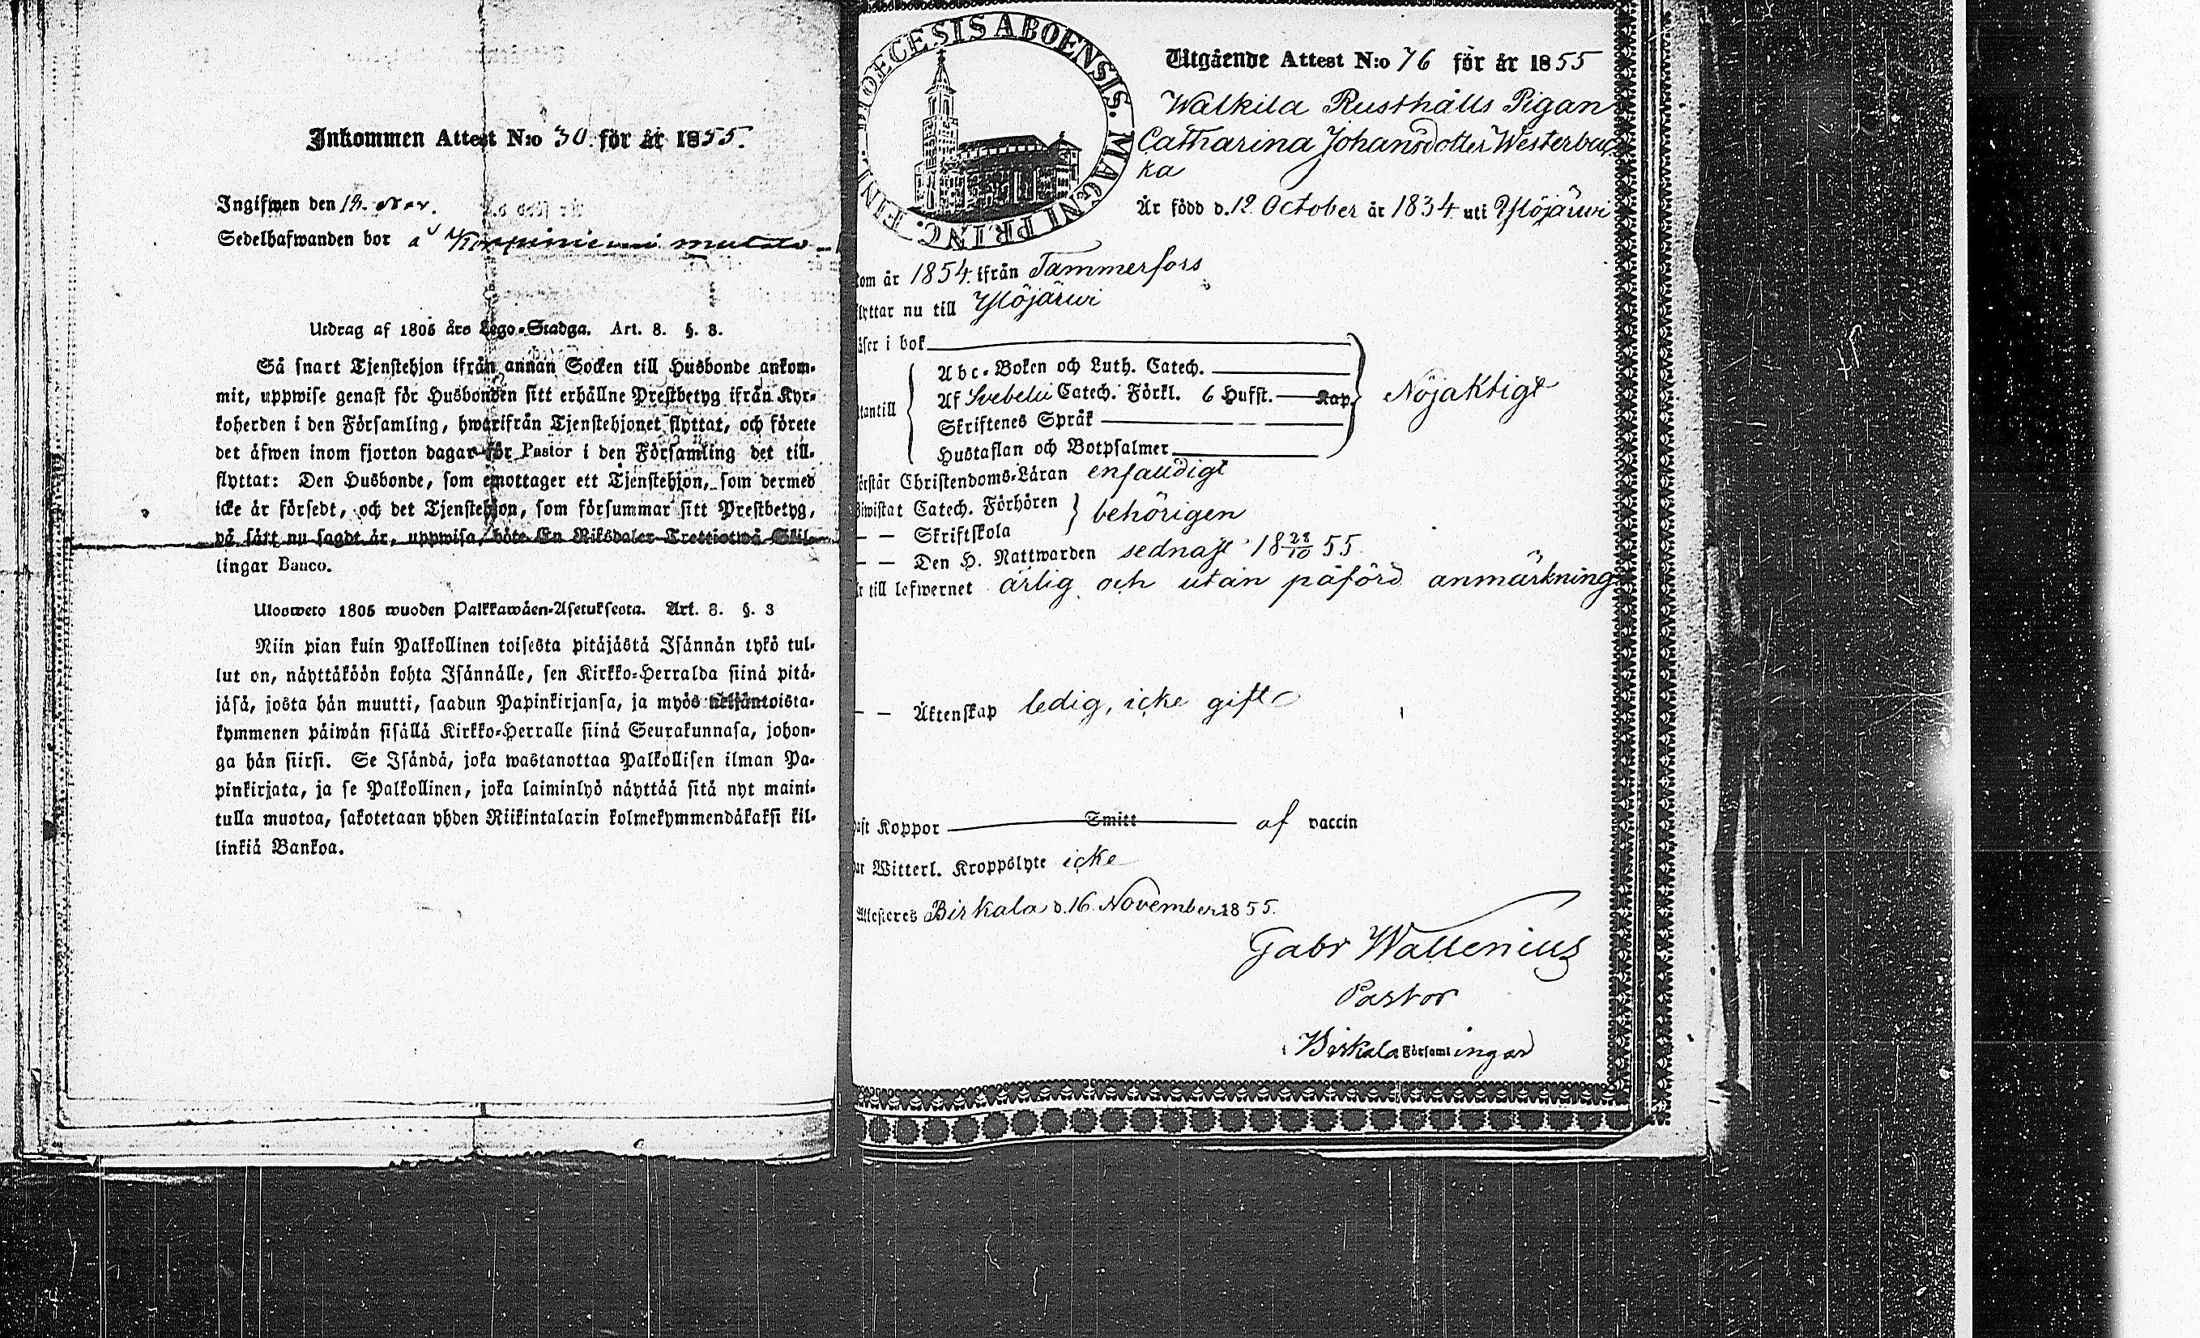 Inkommen Attest N:o 30. för år 1855.
Ingifwen den 19. Nov.
Sedelhafwanden bor å
Utdrag af 1805 års Lego-Stadga. Art. 8. §. 3.
Så snart Tjenstehjon ifrån annan Socken till Husbonde ankom-
mit, uppwise genast för Husbonden sitt erhållne Prestbetyg ifrån Kyr-
koherden i den Församling, hwarifrån Tjenstehjonet flyttat, och förete
det äfwen inom fjorton dagar för Pastor i den Församling det till-
flyttat: Den Husbonde, som emottager ett Tjenstehjon, som dermed
icke är försedt, och det Tjenstehjon, som försummar sitt Prestbetyg,
på sätt nu sagdt är, uppwisa, böte En Riksdaler Trettiotwå Skil-
lingar Banco.
Ulosweto 1805 wuoden Palkkawäen-Asetuksesta. Art. 8. §. 3
Niin pian kuin Palkollinen toisesta pitäjästä Isännän tykö tul-
lut on, näyttäköön kohta Isännälle, sen Kirkko-Herralda siinä pitä-
jäsä, josta hän muutti, saadun Papinkirjansa, ja myös neljäntoista-
kymmenen päiwän sisällä Kirkko-Herralle siinä Seurakunnasa, johon-
ga hän siirsi. Se Isändä, joka wastanottaa Palkollisen ilman Pa-
pinkirjata, ja se Palkollinen, joka laiminlyö näyttää sitä nyt maini-
tulla muotoa, sakotetaan yhden Riikintalarin kolmekymmendäkaksi kil-
linkiä Bankoa.
DIOECESIS ABOENSIS. MAGNI PRINC. FINL.
Utgående Attest N:o 76 för år 1855
Walkila Rusthålls Pigan
Catharina Johansdotter Westerbac
ka
Är född d. 12 October år 1834 uti Ylöjärwi
kom år 1854 ifrån Tammerfors
flyttar nu till Ylöjärwi
läser i bok
Abc-Boken och Luth. Catech.
utantill Af Svebelii Catech. Förkl. 6 Hufst. Kap. Nöjaktigt
Skriftenes Språk
Hustaflan och Botpsalmer
förstår Christendoms-Läran enfaldigt
Biwistat Catech. Förhören behörigen
— — Skriftskola
— — Den H. Nattwarden sednast 18 28/10 55
är till lefwernet ärlig och utan påförd anmärkning
— — Äktenskap ledig, icke gift
haft Koppor Smitt af vaccin
har Witterl. Kroppslyte icke
Attesteres Birkala d. 16 November 1855.
Gabr Wallenius
Pastor
i Birkala Församlingar